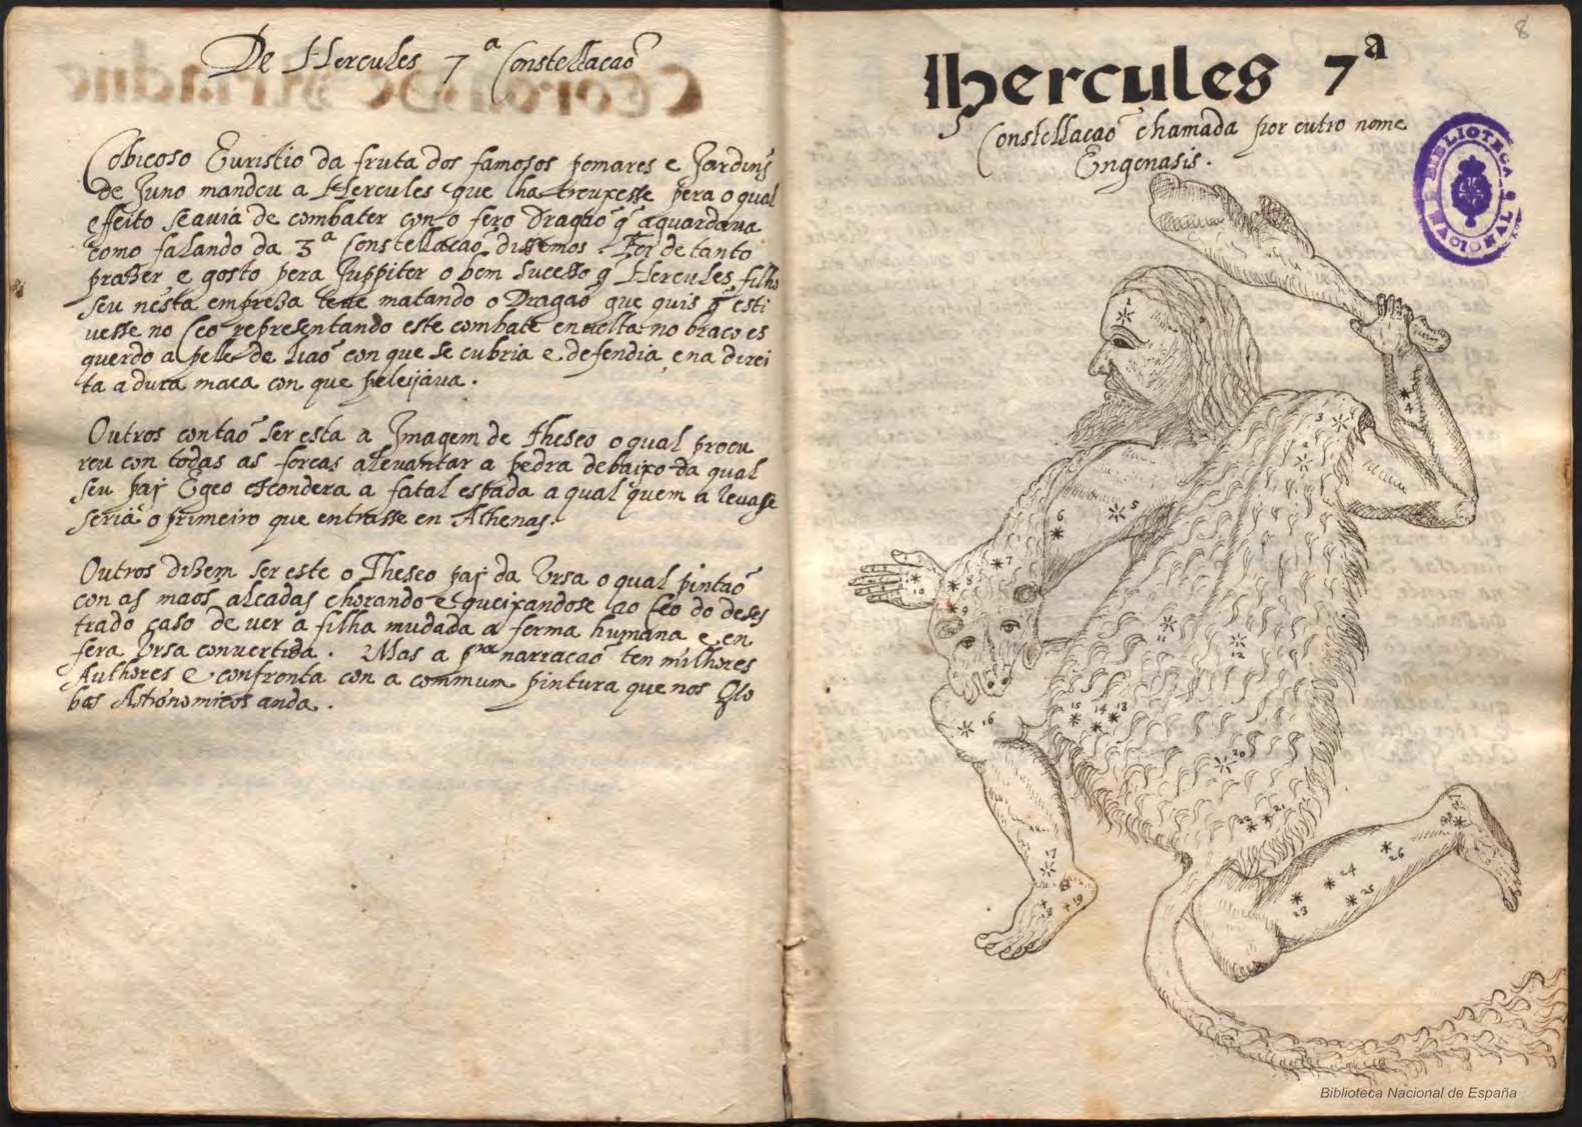 De Hercules 7ª Constellacaõ
Cobicoso Euristio da fruta dos famosos pomares e Jardins
de Juno mandou a Hercules que lha trouxesse pera o qual
effeito se auia de combater con o fero Dragaõ q̃ aguardaua
como falando da 3ª Constellacaõ dissemos. Foi de tanto
prazer e gosto pera Juppiter o bem sucesso q Hercules filho
seu nesta empreza teue matando o Dragaõ que quis q̃ esti
uesse no Ceo representando este combate enuolta no braco es
querdo a pelle de liaõ con que se cubria e defendia, e na direi
ta a dura maca con que peleijaua.
Outros contaõ ser esta a Imagem de Theseo o qual procu
rou con todas as forcas aleuantar a pedra debaixo da qual
seu paj Egeo escondera a fatal espada a qual quem a leuasse
seria o primeiro que entrasse en Athenas.
Outros dizem ser este o Theseo paj da Vrsa o qual pintaõ
con as maos alcadas chorando e queixandose ao Ceo do deses
trado caso de ver a filha mudada a forma humana e en
fera Vrsa conuertida. Mas a pra narracaõ ten milhores
Authores e confronta con a commum pintura que nos Glo
bos Astronomicos anda.
8
Hercules 7ª
Constellacaõ chamada por outro nome
Engonasis.
BIBLIOTECA NACIONAL
1
2
3
4
5
6
7
8
9
10
11
12
15 14 13
16
20
22 21
17
18
19
23
24
25
26
27
28
Biblioteca Nacional de España